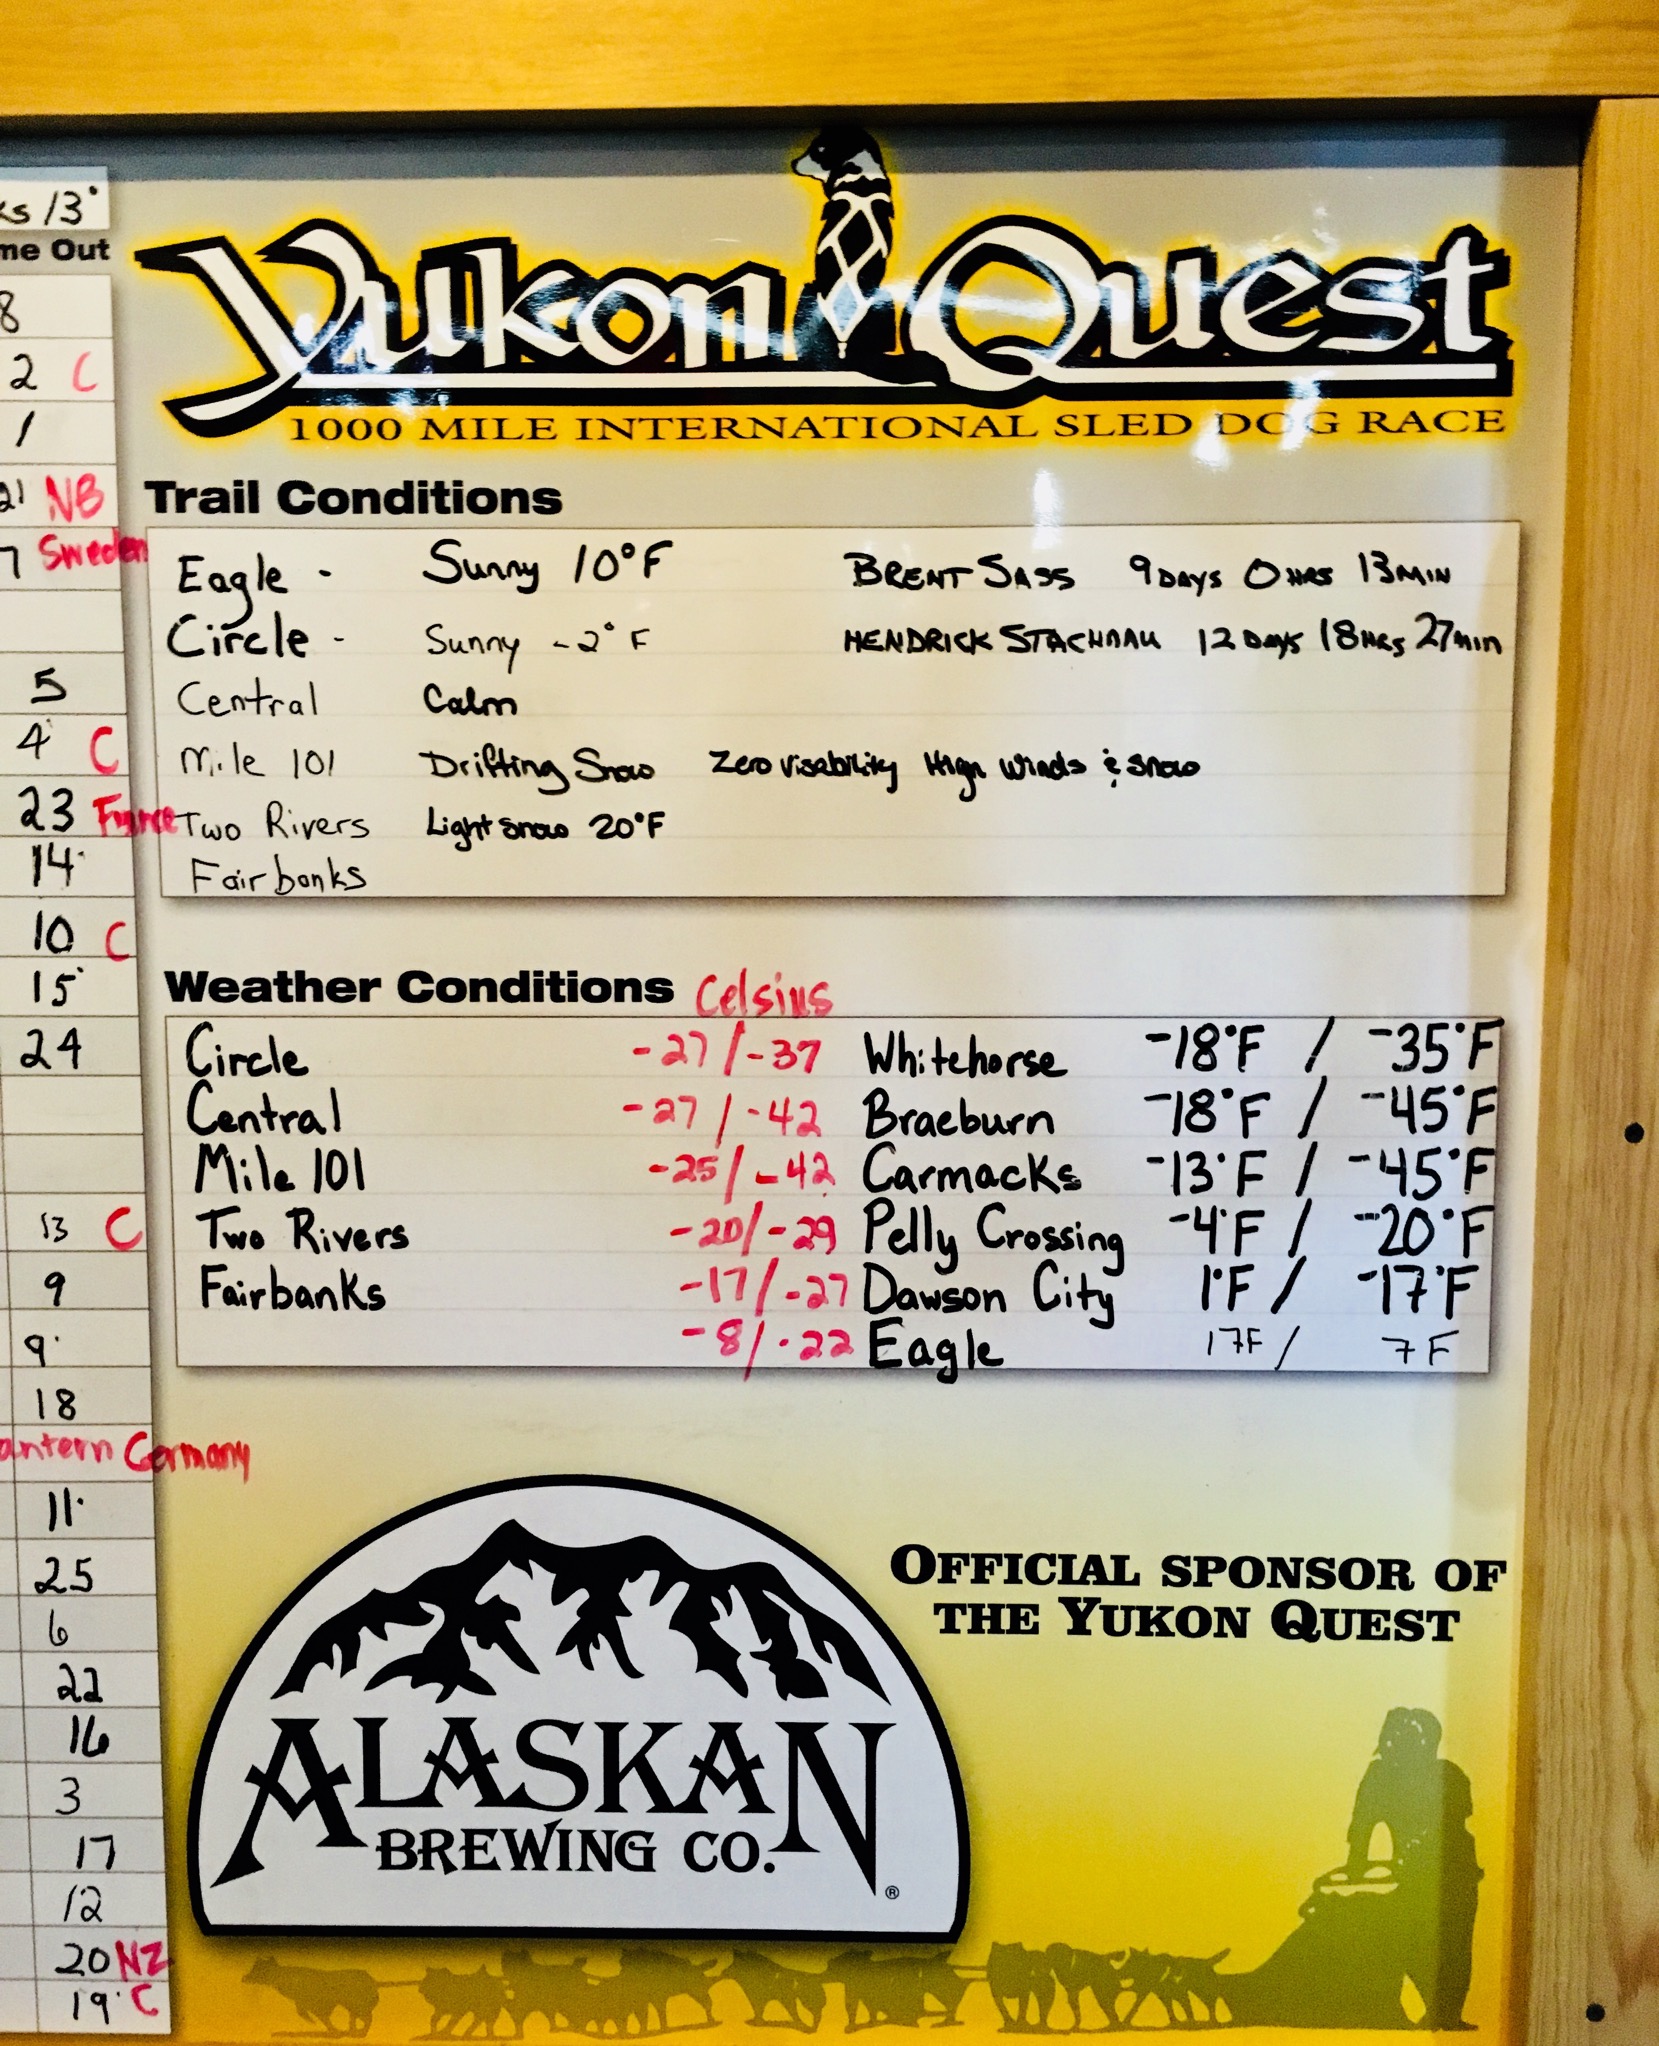 ks 13°
me Out
8
2 C
1
21 NB
7 Sweden
5
4 C
23 France
14
10 C
15
24
13 C
9
9
18
antern Germany
11
25
6
22
16
3
17
12
20 NZ
19 C
Yukon Quest
1000 MILE INTERNATIONAL SLED DOG RACE
Trail Conditions
Eagle - Sunny 10°F BRENT SASS 9 DAYS 0 HRS 13 MIN
Circle - Sunny -2°F HENDRICK STACHNAU 12 DAYS 18 HRS 27 min
Central Calm
Mile 101 Drifting Snow Zero visability High winds & snow
Two Rivers Light snow 20°F
Fairbanks
Weather Conditions Celsius
Circle -27/-37 Whitehorse -18°F / -35°F
Central -27/-42 Braeburn -18°F / -45°F
Mile 101 -25/-42 Carmacks -13°F / -45°F
Two Rivers -20/-29 Pelly Crossing -4°F / -20°F
Fairbanks -17/-27 Dawson City 1°F / -17°F
-8/-22 Eagle 17F / 7F
OFFICIAL SPONSOR OF
THE YUKON QUEST
ALASKAN
BREWING CO.
®